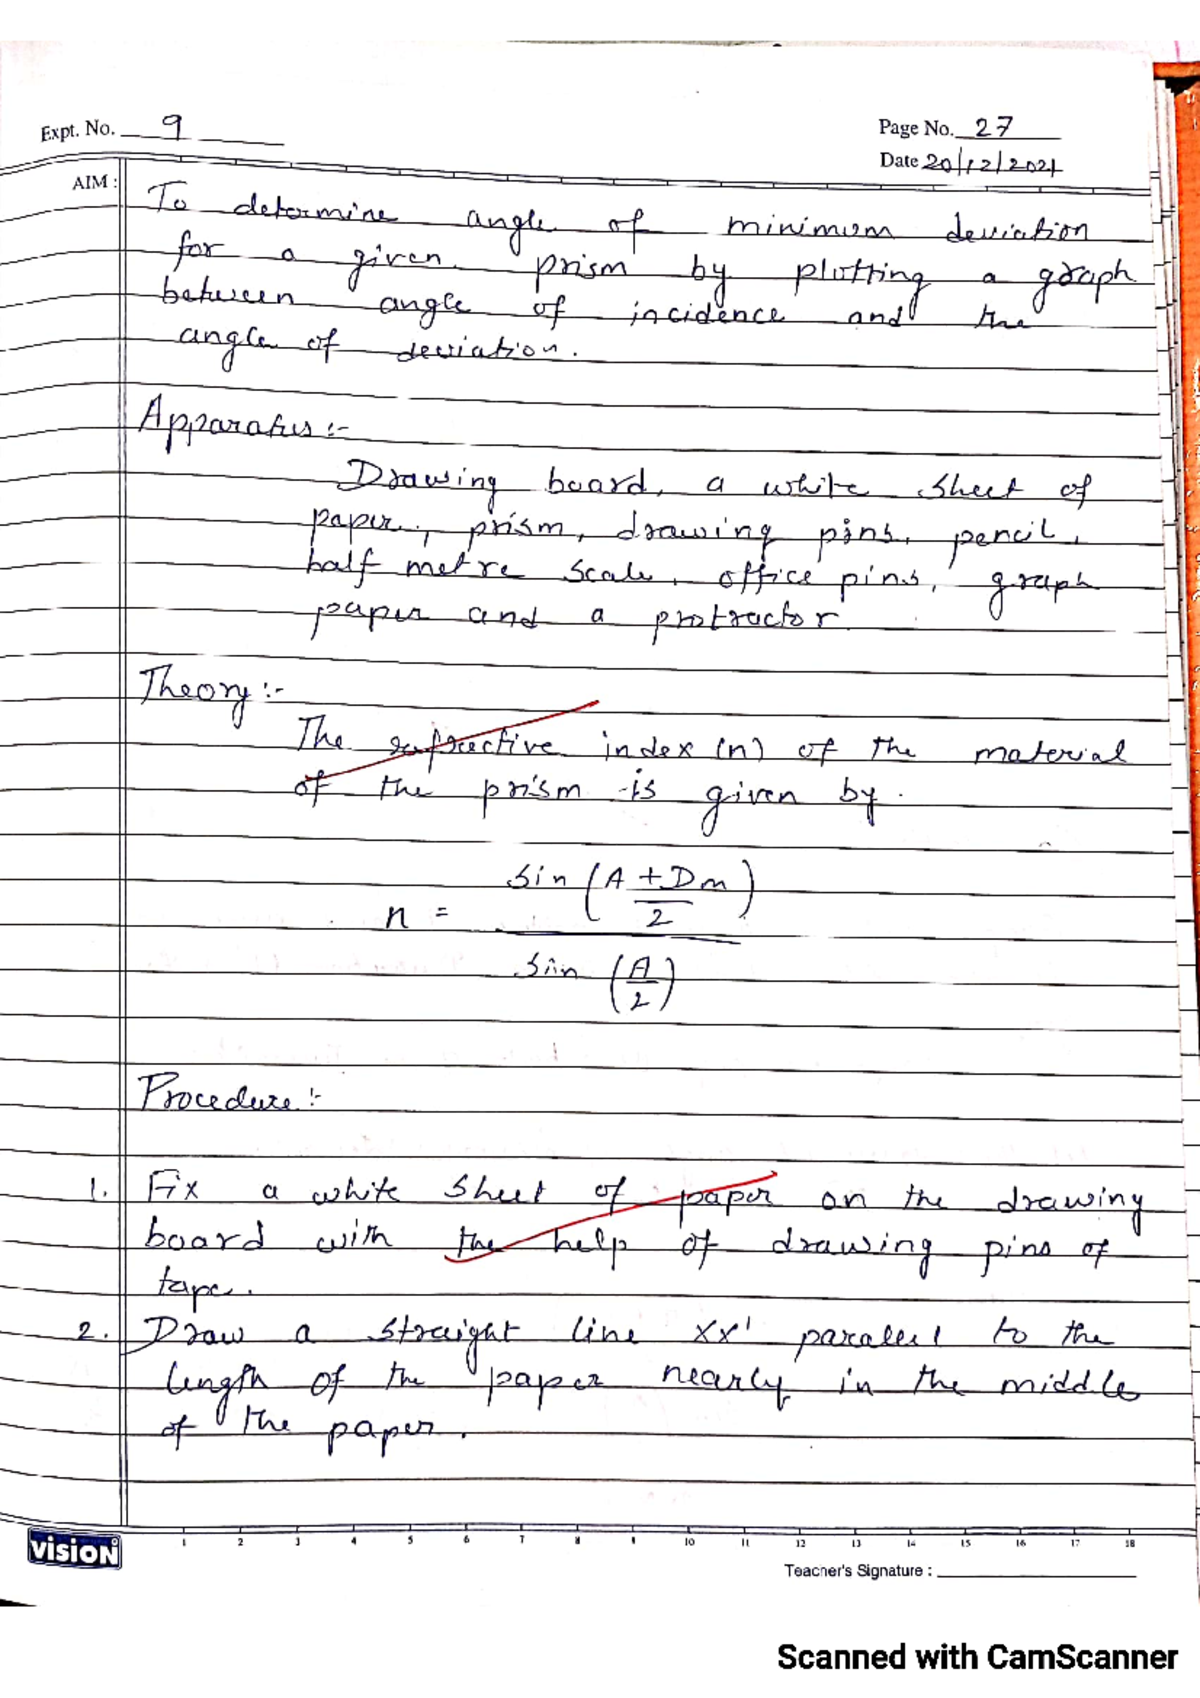 Expt. No. 9
Page No. 27
Date 20/12/2021
AIM :
To determine angle of minimum deviation
for a given prism by plotting a graph
between angle of incidence and the
angle of deviation.
Apparatus :-
Drawing board, a white sheet of
paper, prism, drawing pins, pencil,
half metre scale, office pins, graph
paper and a protractor.
Theory :-
The refractive index (n) of the material
of the prism is given by.
n = sin (A + Dm / 2)
sin (A / 2)
Procedure :-
1. Fix a white sheet of paper on the drawing
board with the help of drawing pins of
tape.
2. Draw a straight line XX' parallel to the
length of the paper nearly in the middle
of the paper.
vision
1 2 3 4 5 6 7 8 9 10 11 12 13 14 15 16 17 18
Teacher's Signature :
Scanned with CamScanner